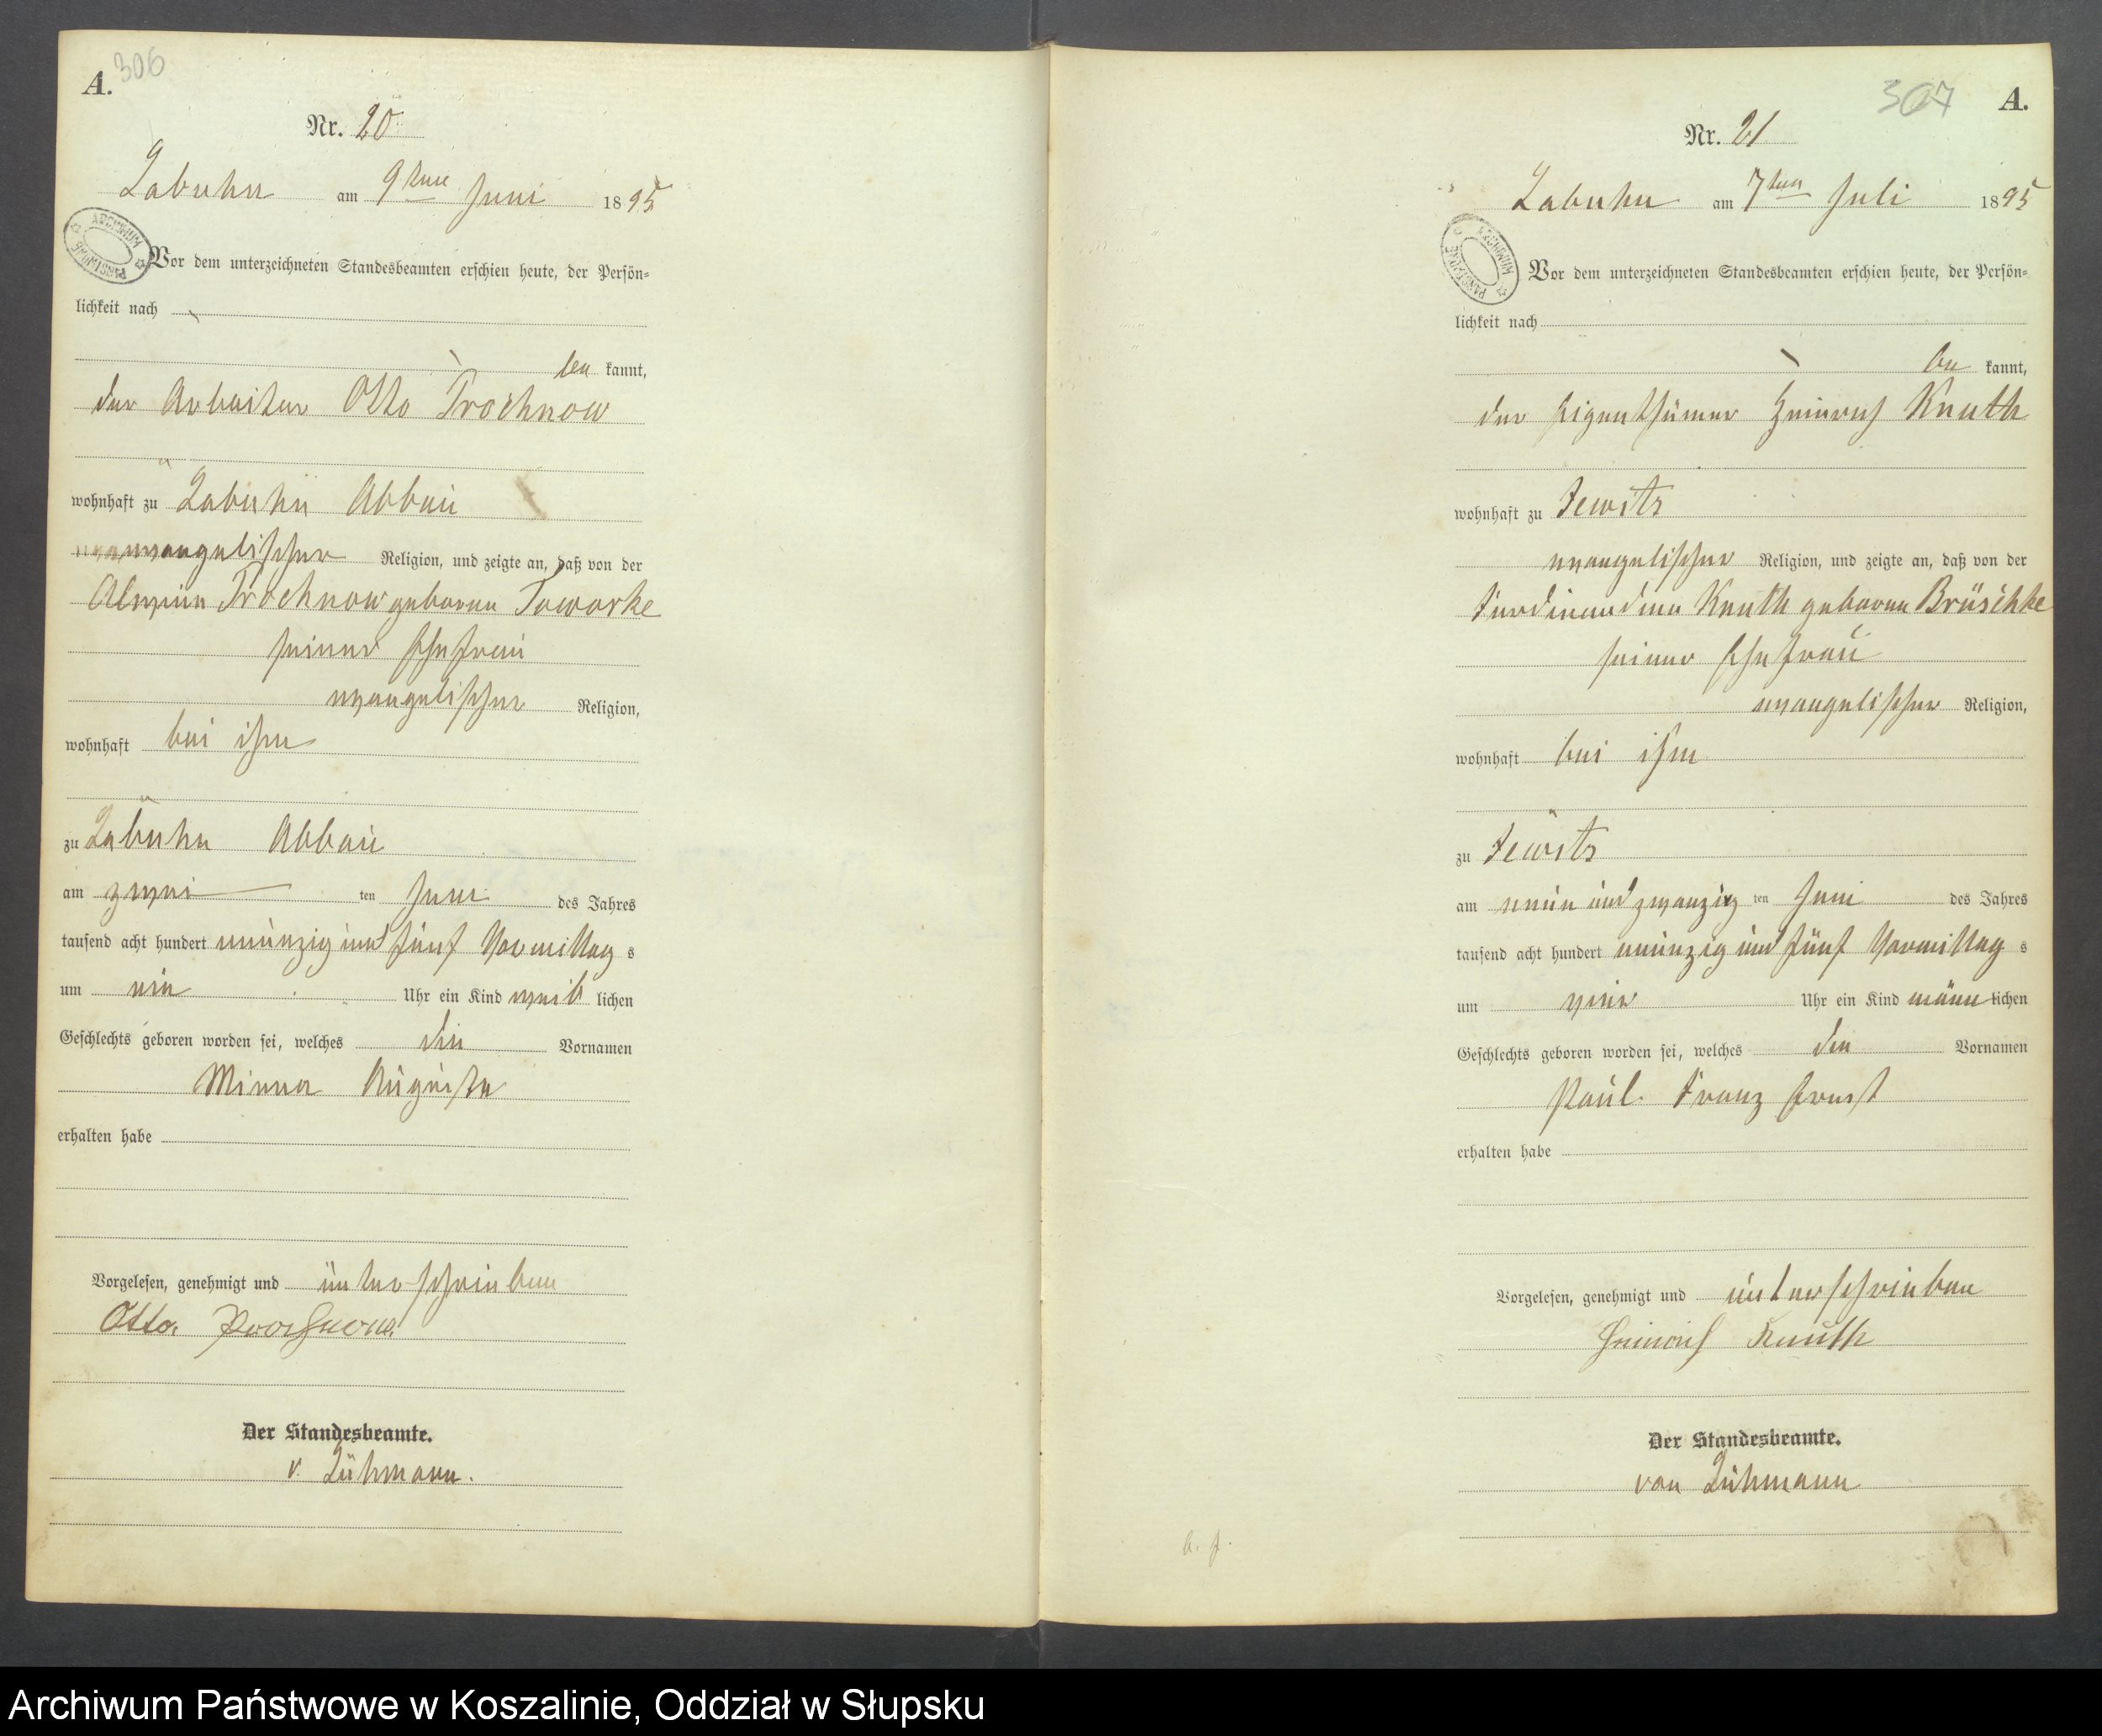 A. 306
Nr. 20
Labuhn am 9ten Juni 1895
Vor dem unterzeichneten Standesbeamten erschien heute, der Persön-
lichkeit nach
be kannt,
der Arbeiter Otto Prochnow
wohnhaft zu Labuhn Abbau
evangelischer Religion, und zeigte an, daß von der
Alwine Prochnow geborene Toworke
seiner Ehefrau
evangelischer Religion,
wohnhaft bei ihm
zu Labuhn Abbau
am zwei ten Juni des Jahres
tausend acht hundert neunzig und fünf Vormittag s
um ein Uhr ein Kind weib lichen
Geschlechts geboren worden sei, welches die Vornamen
Minna Auguste
erhalten habe
Vorgelesen, genehmigt und unterschrieben
Otto Prochnow
Der Standesbeamte.
v. Lühmann.
307 A.
Nr. 21
Labuhn am 7ten Juli 1895
Vor dem unterzeichneten Standesbeamten erschien heute, der Persön-
lichkeit nach
be kannt,
der Eigenthümer Heinrich Knuth
wohnhaft zu Jewitz
evangelischer Religion, und zeigte an, daß von der
Ferdinandine Knuth geborene Brüschke
seiner Ehefrau
evangelischer Religion,
wohnhaft bei ihm
zu Jewitz
am neun und zwanzig ten Juni des Jahres
tausend acht hundert neunzig und fünf Vormittag s
um vier Uhr ein Kind männ lichen
Geschlechts geboren worden sei, welches den Vornamen
Paul Franz Ernst
erhalten habe
Vorgelesen, genehmigt und unterschrieben
Heinrich Knuth
Der Standesbeamte.
von Lühmann
ARCHIWUM PAŃSTWOWE
ARCHIWUM PAŃSTWOWE
Archiwum Państwowe w Koszalinie, Oddział w Słupsku